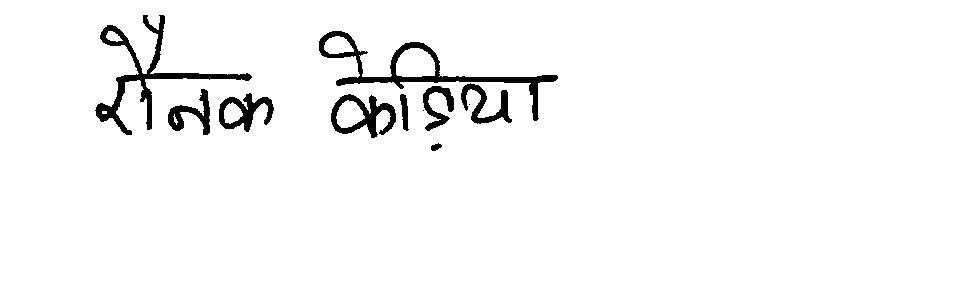 रौनक केड़िया